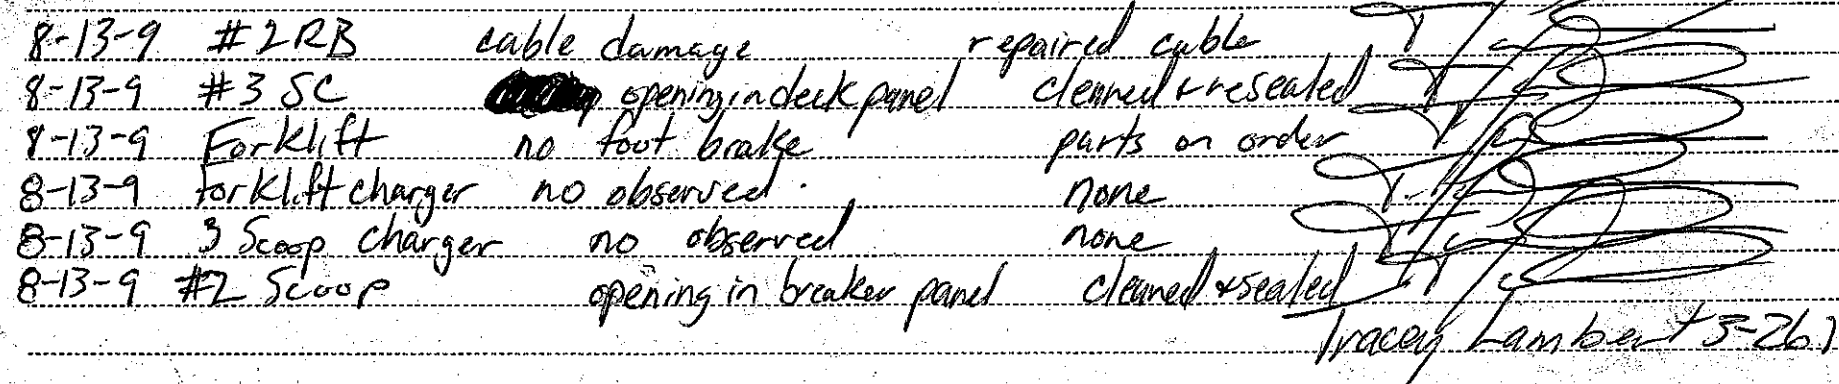 8-13-9 #2 RB cable damage repaired cable
8-13-9 #3 SC opening in deck panel cleaned + resealed
8-13-9 Forklift no foot brake parts on order
8-13-9 forklift charger no observed. none
8-13-9 3 Scoop charger no observed none
8-13-9 #2 Scoop opening in breaker panel cleaned + sealed
Tracey Lambert